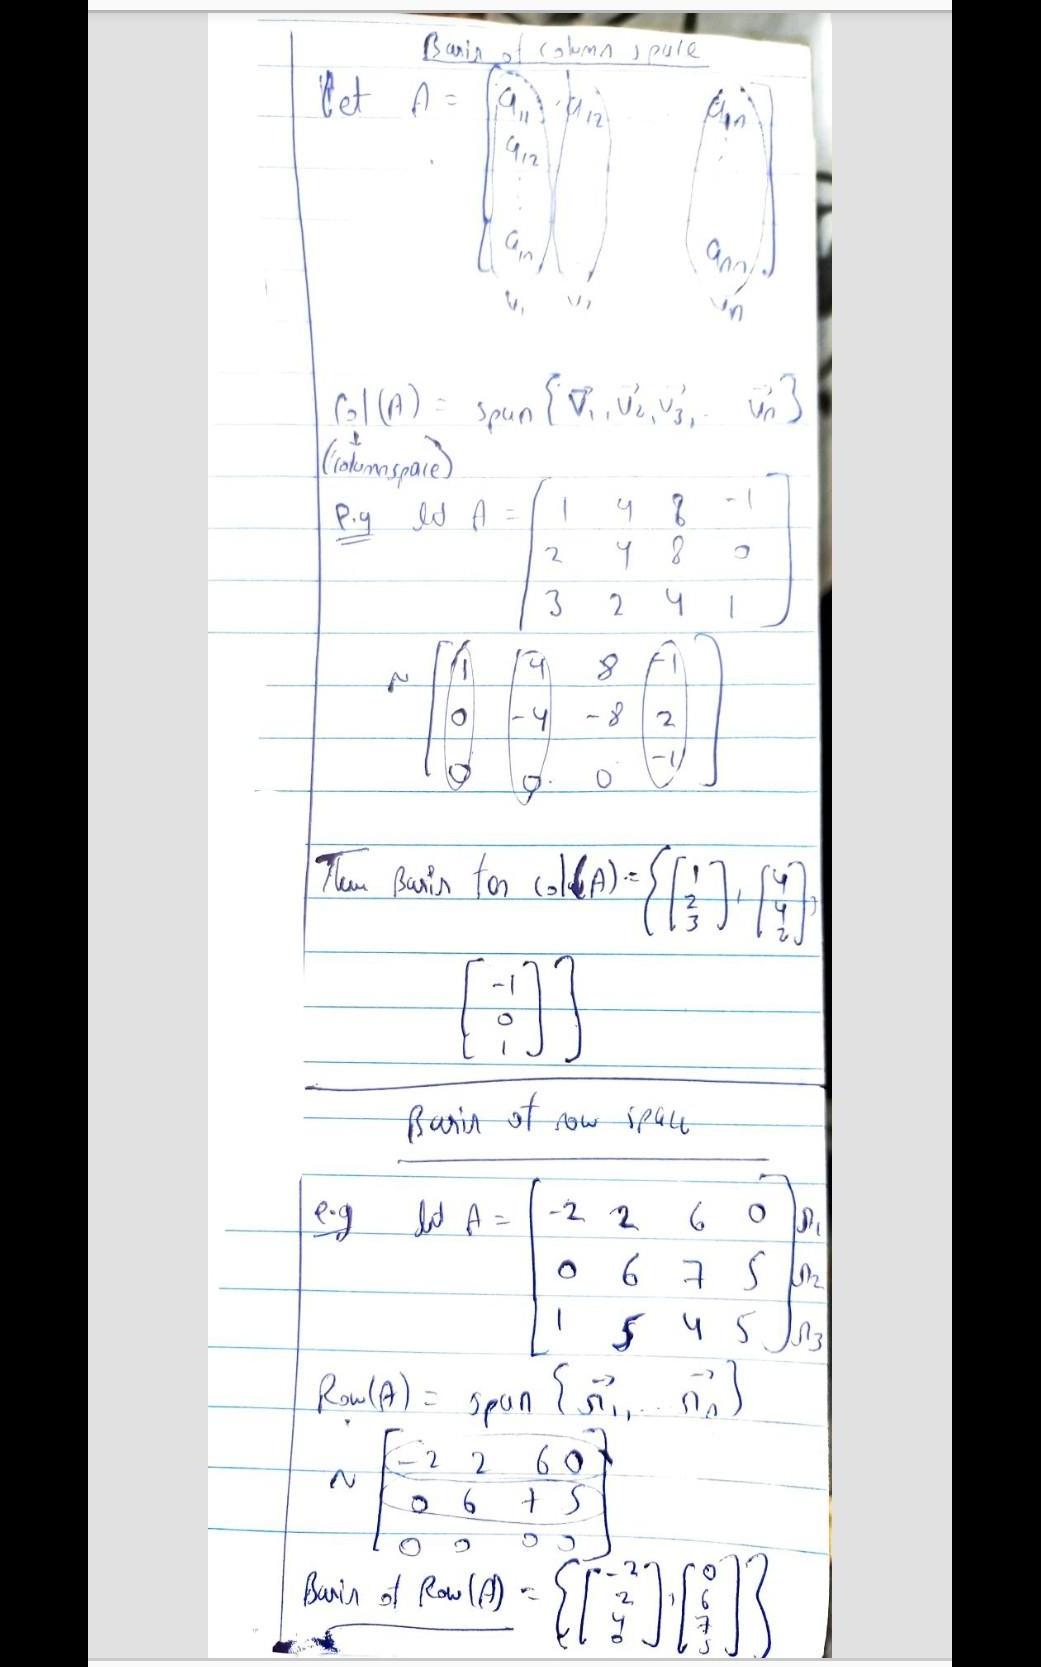 Basis of column space
Let A = [a11 a12 a1n
a12
a1n ann]
v1 v2 vn
Col(A) = span {v1, v2, v3, .. vn}
(column space)
e.g let A = [1 4 8 -1
2 4 8 0
3 2 4 1]
~ [1 4 8 -1
0 -4 -8 2
0 0 0 -1]
Then Basis for col(A) = {[1 2 3], [4 4 2],
[-1 0 1]}
Basis of row space
e.g let A = [-2 2 6 0] r1
0 6 7 5 r2
1 5 4 5 r3
Row(A) = span {r1, .. rn}
~ [-2 2 6 0
0 6 7 5
0 0 0 0]
Basis of Row(A) = {[-2 2 4 0], [0 6 7 5]}